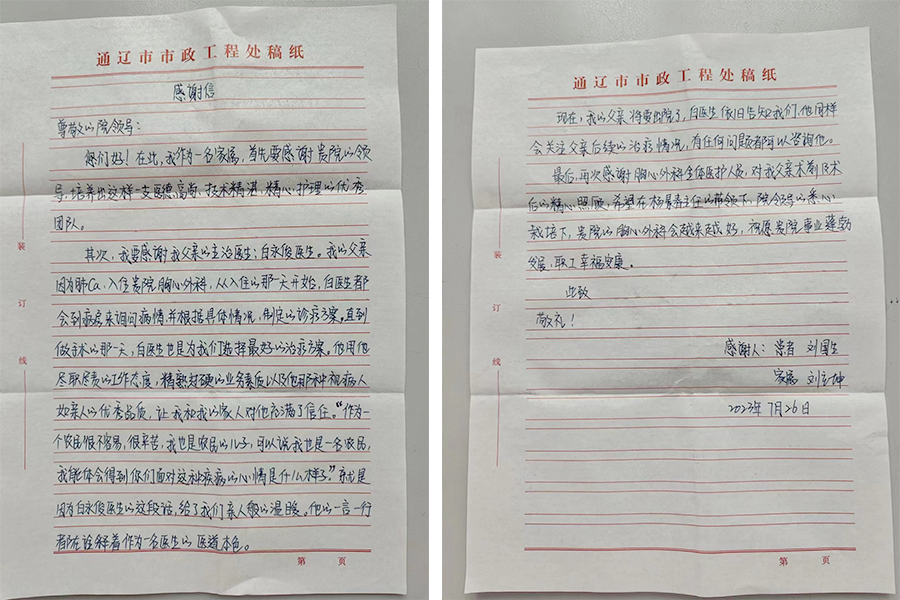 通辽市市政工程处稿纸
感谢信
尊敬的院领导：
您们好！在此，我作为一名家属，首先要感谢贵院的领
导，培养出这样一支医德高尚、技术精湛、精心护理的优秀
团队。
其次，我要感谢我父亲的主治医生：白永俊医生。我的父亲
因为肺Ca，入住贵院胸心外科，从入住的那一天开始，白医生都
会到病房来询问病情，并根据具体情况，制定的诊疗方案。直到
做手术的那一天，白医生也是为我们选择最好的治疗方案。他用他
尽职尽责的工作态度，精熟过硬的业务素质以及他那种视病人
如亲人的优秀品质，让我和我的家人对他充满了信任。“作为一
个农民很不容易，很辛苦，我也是农民的儿子，可以说我也是一名农民，
我能体会得到你们面对这种疾病的心情是什么样子”就是
因为白永俊医生的这段话，给了我们亲人般的温暖。他的一言一行
都在诠释着作为一名医生的医道本色。
装
订
线
第 页
通辽市市政工程处稿纸
现在，我的父亲将要出院了，白医生依旧告知我们，他同样
会关注父亲后续的治疗情况，有任何问题都可以咨询他。
最后，再次感谢胸心外科全体医护人员，对我父亲术前及术
后的精心照顾，希望在杨景春主任的带领下，院领导的悉心
栽培下，贵院的胸心外科会越来越好，祝愿贵院事业蓬勃
发展，职工幸福安康。
此致
敬礼！
感谢人：患者 刘国生
家属 刘 坤
2023年7月26日
装
订
线
第 页